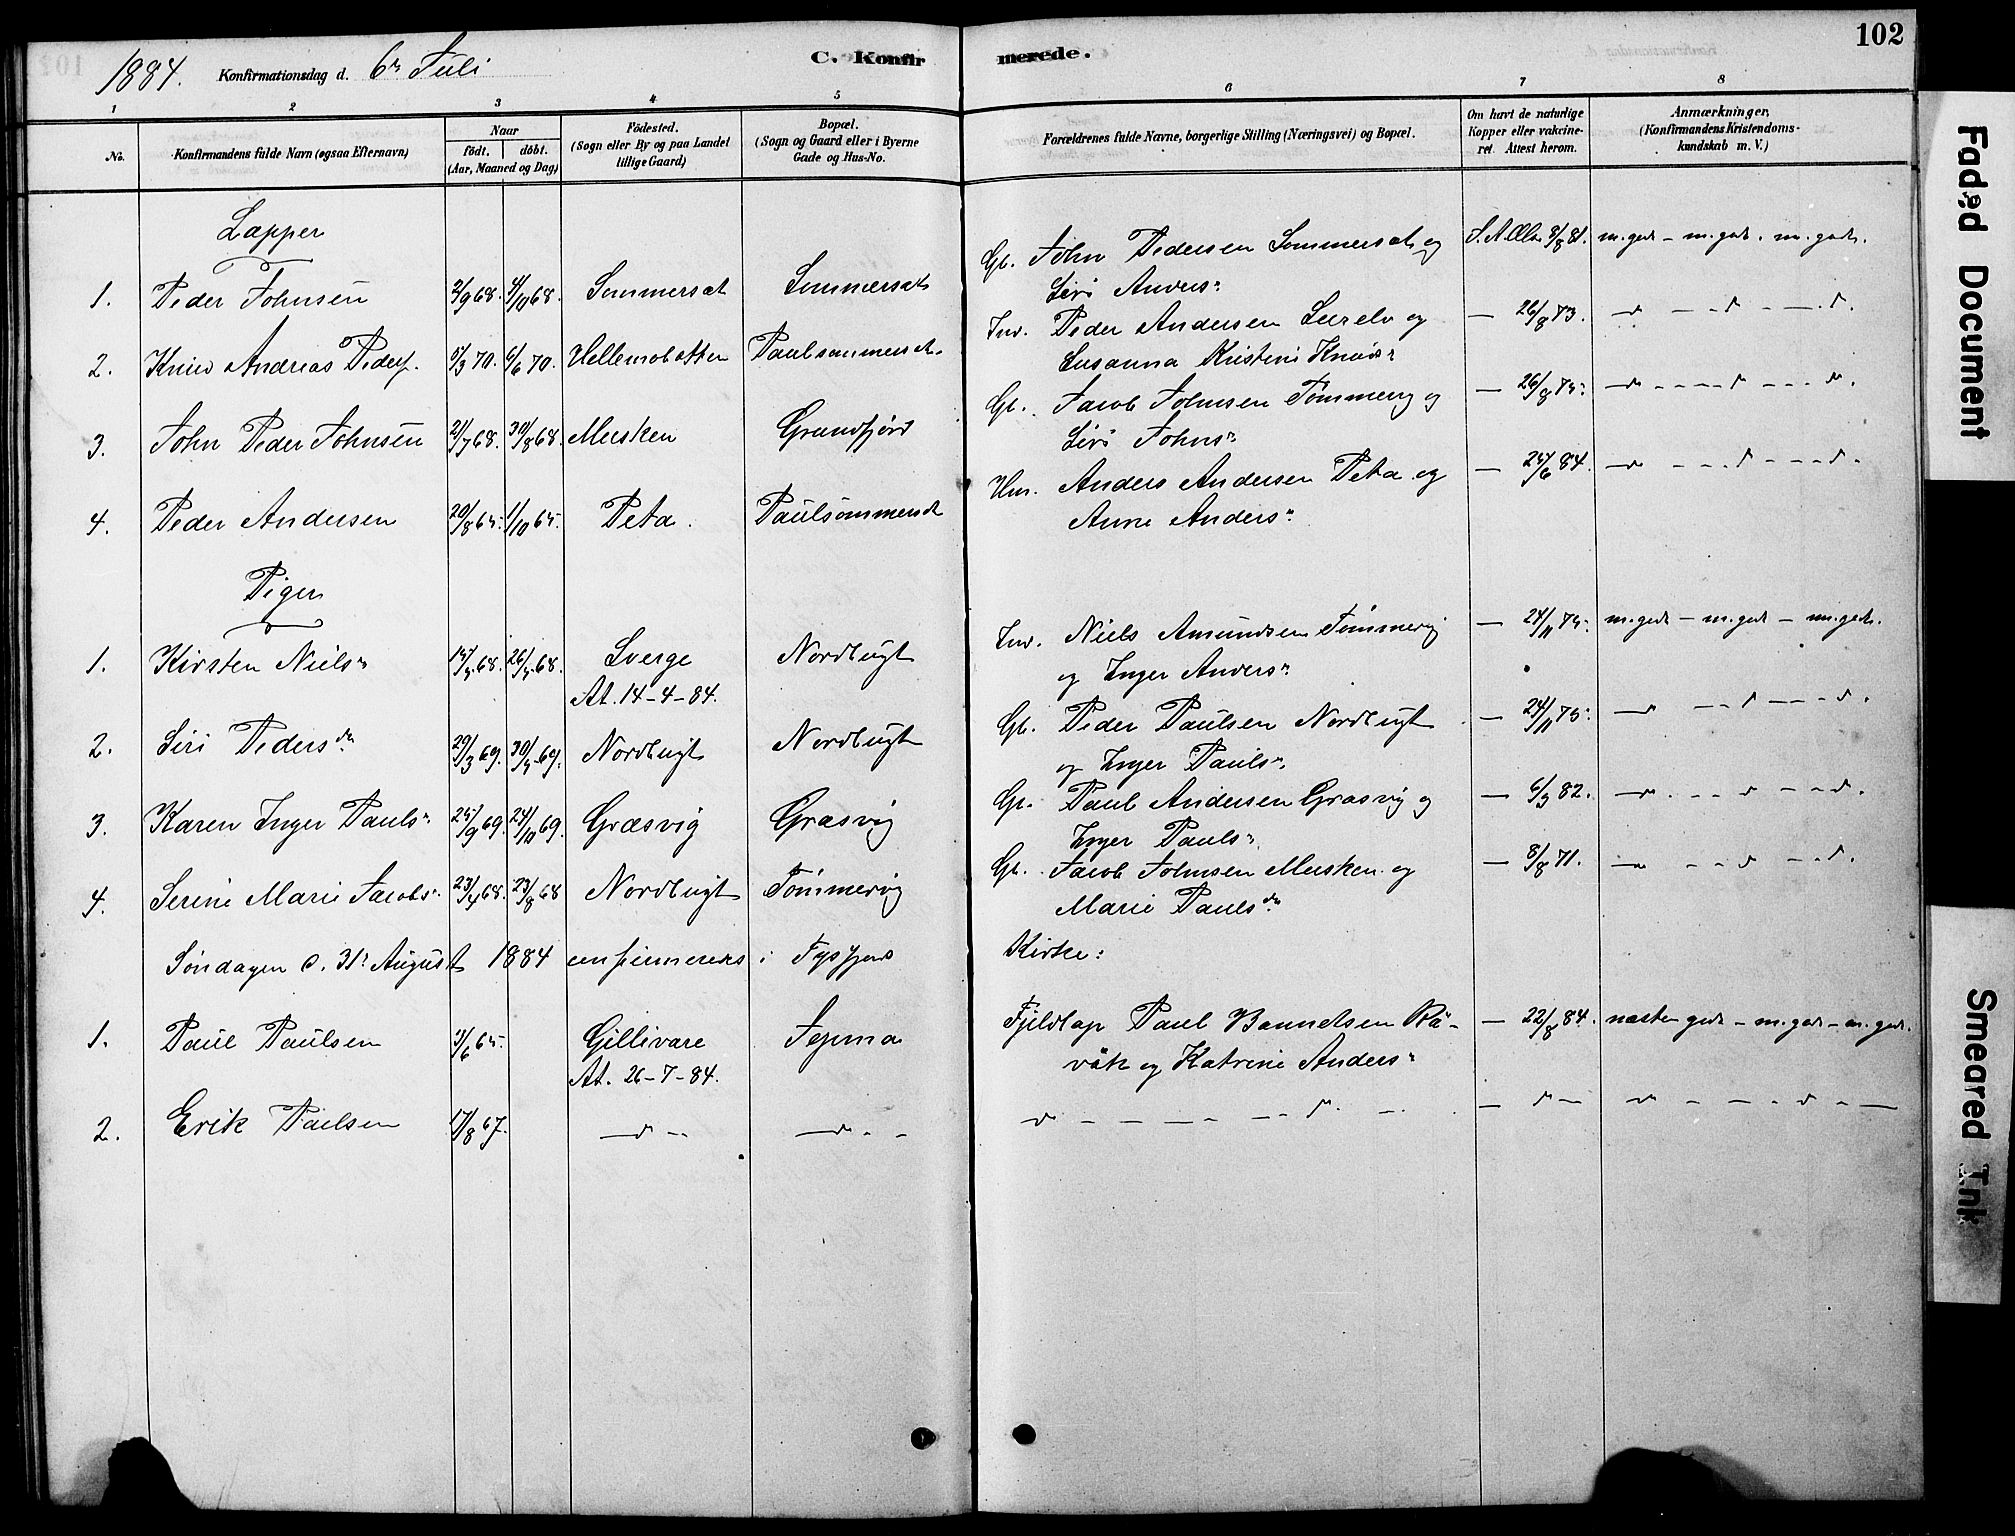 102
1884. Konfirmationsdag d. 6te Juli
C. Konfirmerede.
1 2 3 4 5 6 7 8
No.
Konfirmandens fulde Navn (ogsaa Efternavn)
Naar
födt. döbt.
(Aar, Maaned og Dag)
Födested.
(Sogn eller By og paa Landet
tillige Gaard)
Bopæl.
(Sogn og Gaard eller i Byerne
Gade og Hus-No.
Forældrenes fulde Navne, borgerlige Stilling (Næringsvei) og Bopæl.
Om havt de naturlige
Kopper eller vakcine-
ret. Attest herom.
Anmærkninger,
(Konfirmandens Kristendoms-
kundskab m. V.)
Lapper
1. Peder Johnsen 2/9 68. 4/10 68. Sommersæt Sommersæt Gb. John Pedersen Sommersæt og 8/8 81. m.godt - m.godt. m.godt.
Siri Anders:
2. Knud Andreas Peders. 5/3 70. 6/6 70. Hellemobotten Paulsommersæt. Ind. Peder Andersen og — 26/8 73. — d — — d — — d.
Susanna Kristine Knuds:
3. John Peder Johnsen 21/7 68. 30/8 68. Musken Grundfjord Gb. Jacob Johnsen Tømmervig og — 26/8 75. — d - - - d - - - d.
Siri Johns:
4. Peder Andersen 20/8 65. 1/10 65. Peta. Paulsommersæt Hm. Anders Andersen Peta og — 24/6 84. — d - - - d - - - d.
Anne Anders:
Piger
1. Kirsten Niels: 14/5 68. 26/5 68. Sverge Nordbugt Ind. Niels Amundsen Tømmervig — 24/11 75. m.godt - m.godt - m.godt.
At. 14-4-84. og Inger Anders:
2. Siri Pedersdr 29/3 69. 30/5 69. Nordbugt Nordbugt Gb. Peder Paulsen Nordbugt — 24/11 75. — d — — d — — d.
og Inger Pauls:
3. Karen Inger Pauls: 25/9 69. 24/10 69. Græsvig Græsvig Gb. Paul Andersen Græsvig og — 6/3 82. — d. - - d - - d.
Inger Pauls:
4. Serine Marie Jacobs: 23/4 68. 23/8 68 Nordbugt Tømmervig Gb. Jacob Johnsen Musken og — 8/8 71. — d - - d - - d.
Marie Paulsdr
Søndagen d. 31te August 1884 confirmeredes i Tysfjord Kirke:
1. Paul Paulsen 3/6 65. Gillivare Fjeldlap Paul — 22/8 84. næsten godt - m.godt - m.godt.
At. 26-7-84. og Katrine Anders:
2. Erik Paulsen 17/8 67. — d — — d - - d - - - - - d - - — d — d - - - d - —
Faded Document
Smeared Ink